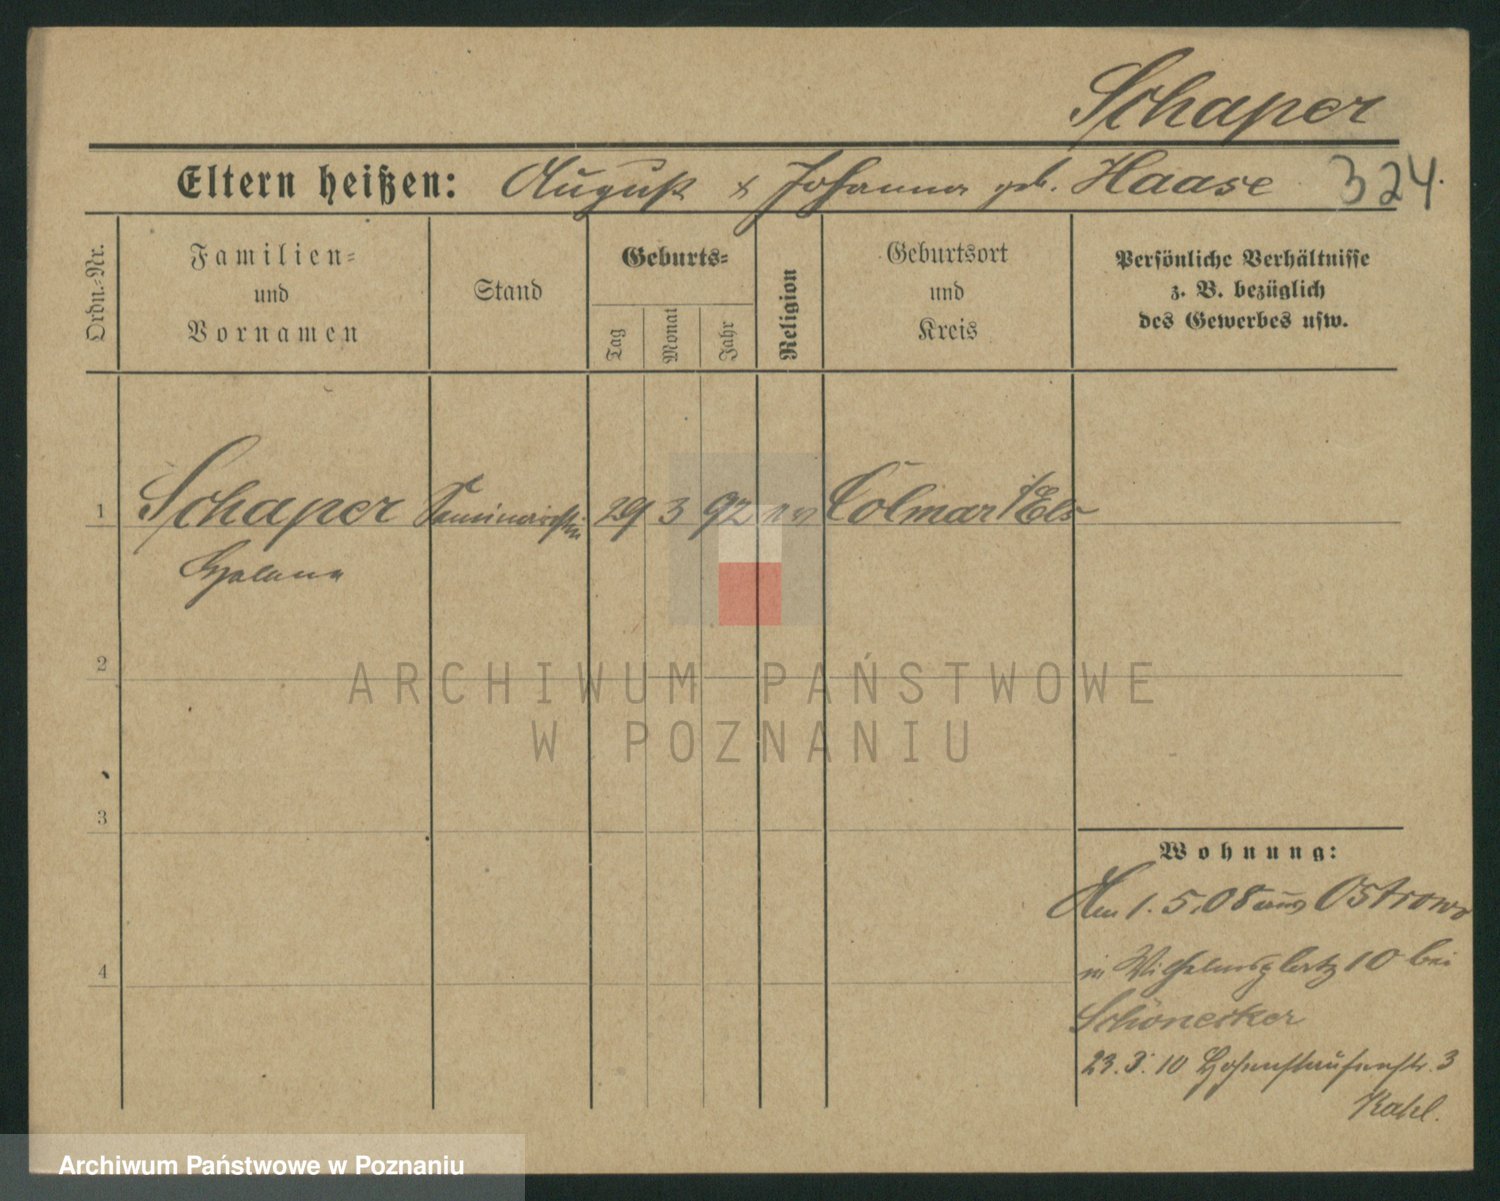 Schaper
Eltern heißen: August & Johanna geb. Haase 324.
Ordn.-Nr.
Familien-
und
Vornamen
Stand
Geburts-
Tag
Monat
Jahr
Religion
Geburtsort
und
Kreis
Persönliche Verhältnisse
z. B. bezüglich
des Gewerbes usw.
1 Schaper Seminaristin 29 3 92 ev Colmar i/Els
Helene
2
ARCHIWUM PAŃSTWOWE
W POZNANIU
3
Wohnung:
Am 1.5.08 aus Ostrowo
in Wilhelmsplatz 10 bei
Schönecker
4
23. 3. 10 Hohenstaufenstr. 3
Kahl.
Archiwum Państwowe w Poznaniu